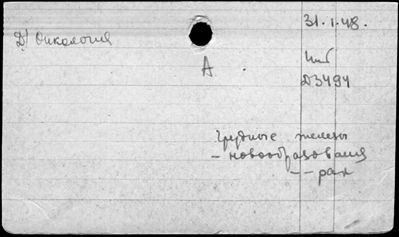 31.1.48.
Д Онкология
А
Инв
Д3494
Грудные железы
- новообразования
- - рак